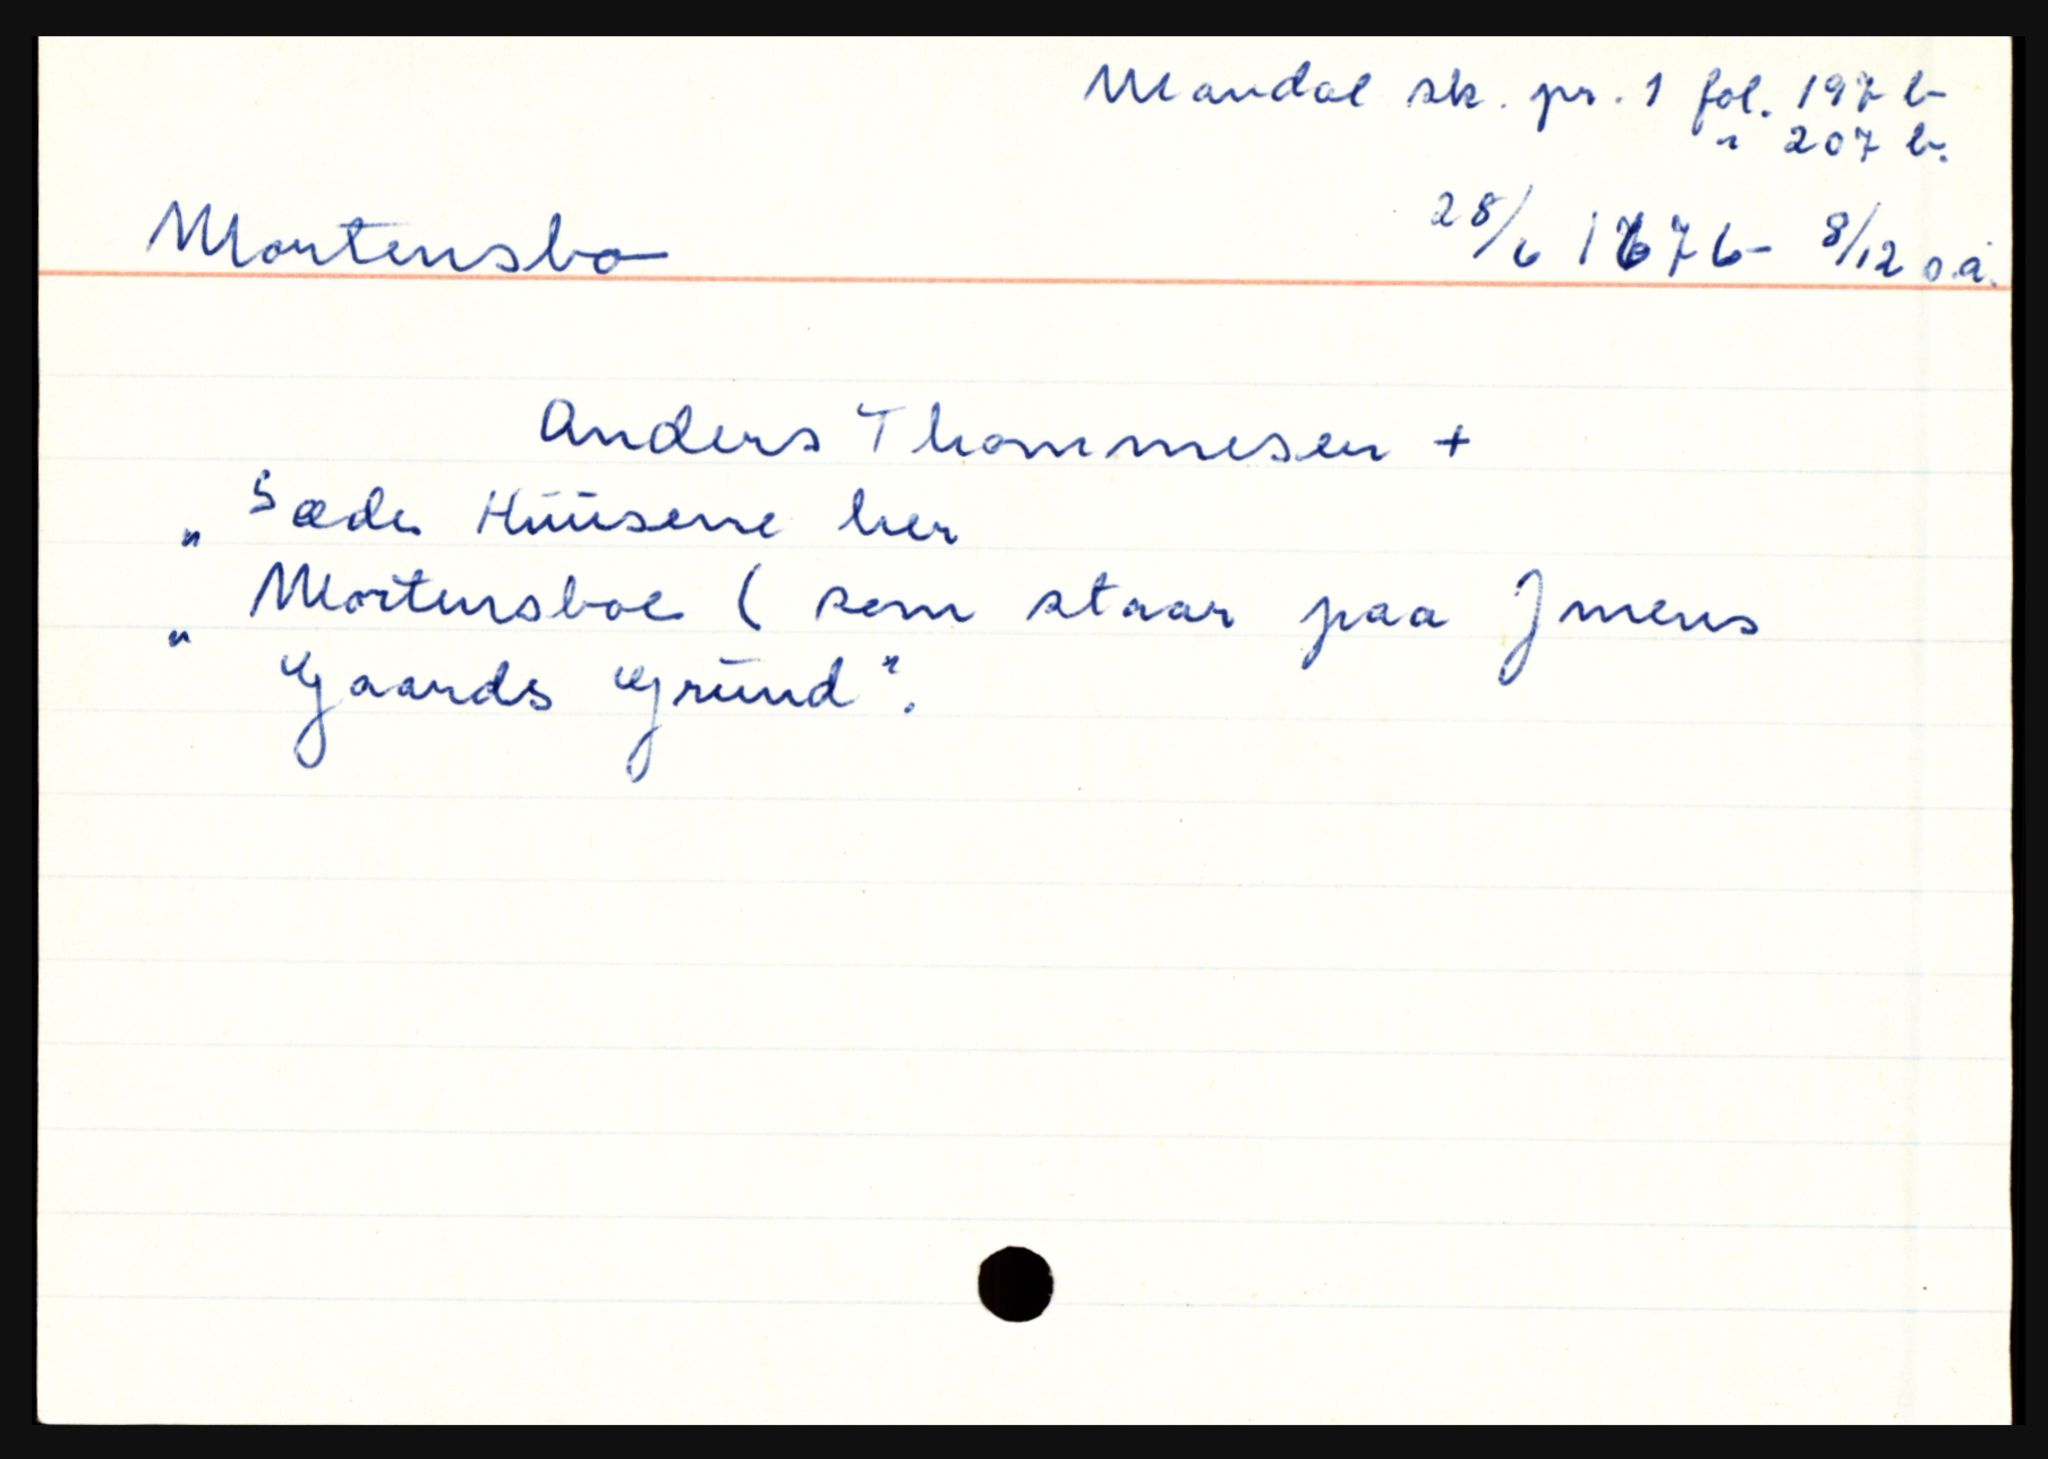 Mandal sk. pr. 1 fol. 197 b
" 207 b.
Mortensbo 28/6 1676 - 8/12 s.å.
Anders Thommesen +
" Sæde Hüüsene her
" Mortensboe ( som staar paa Jmens
Gaards Gründ".